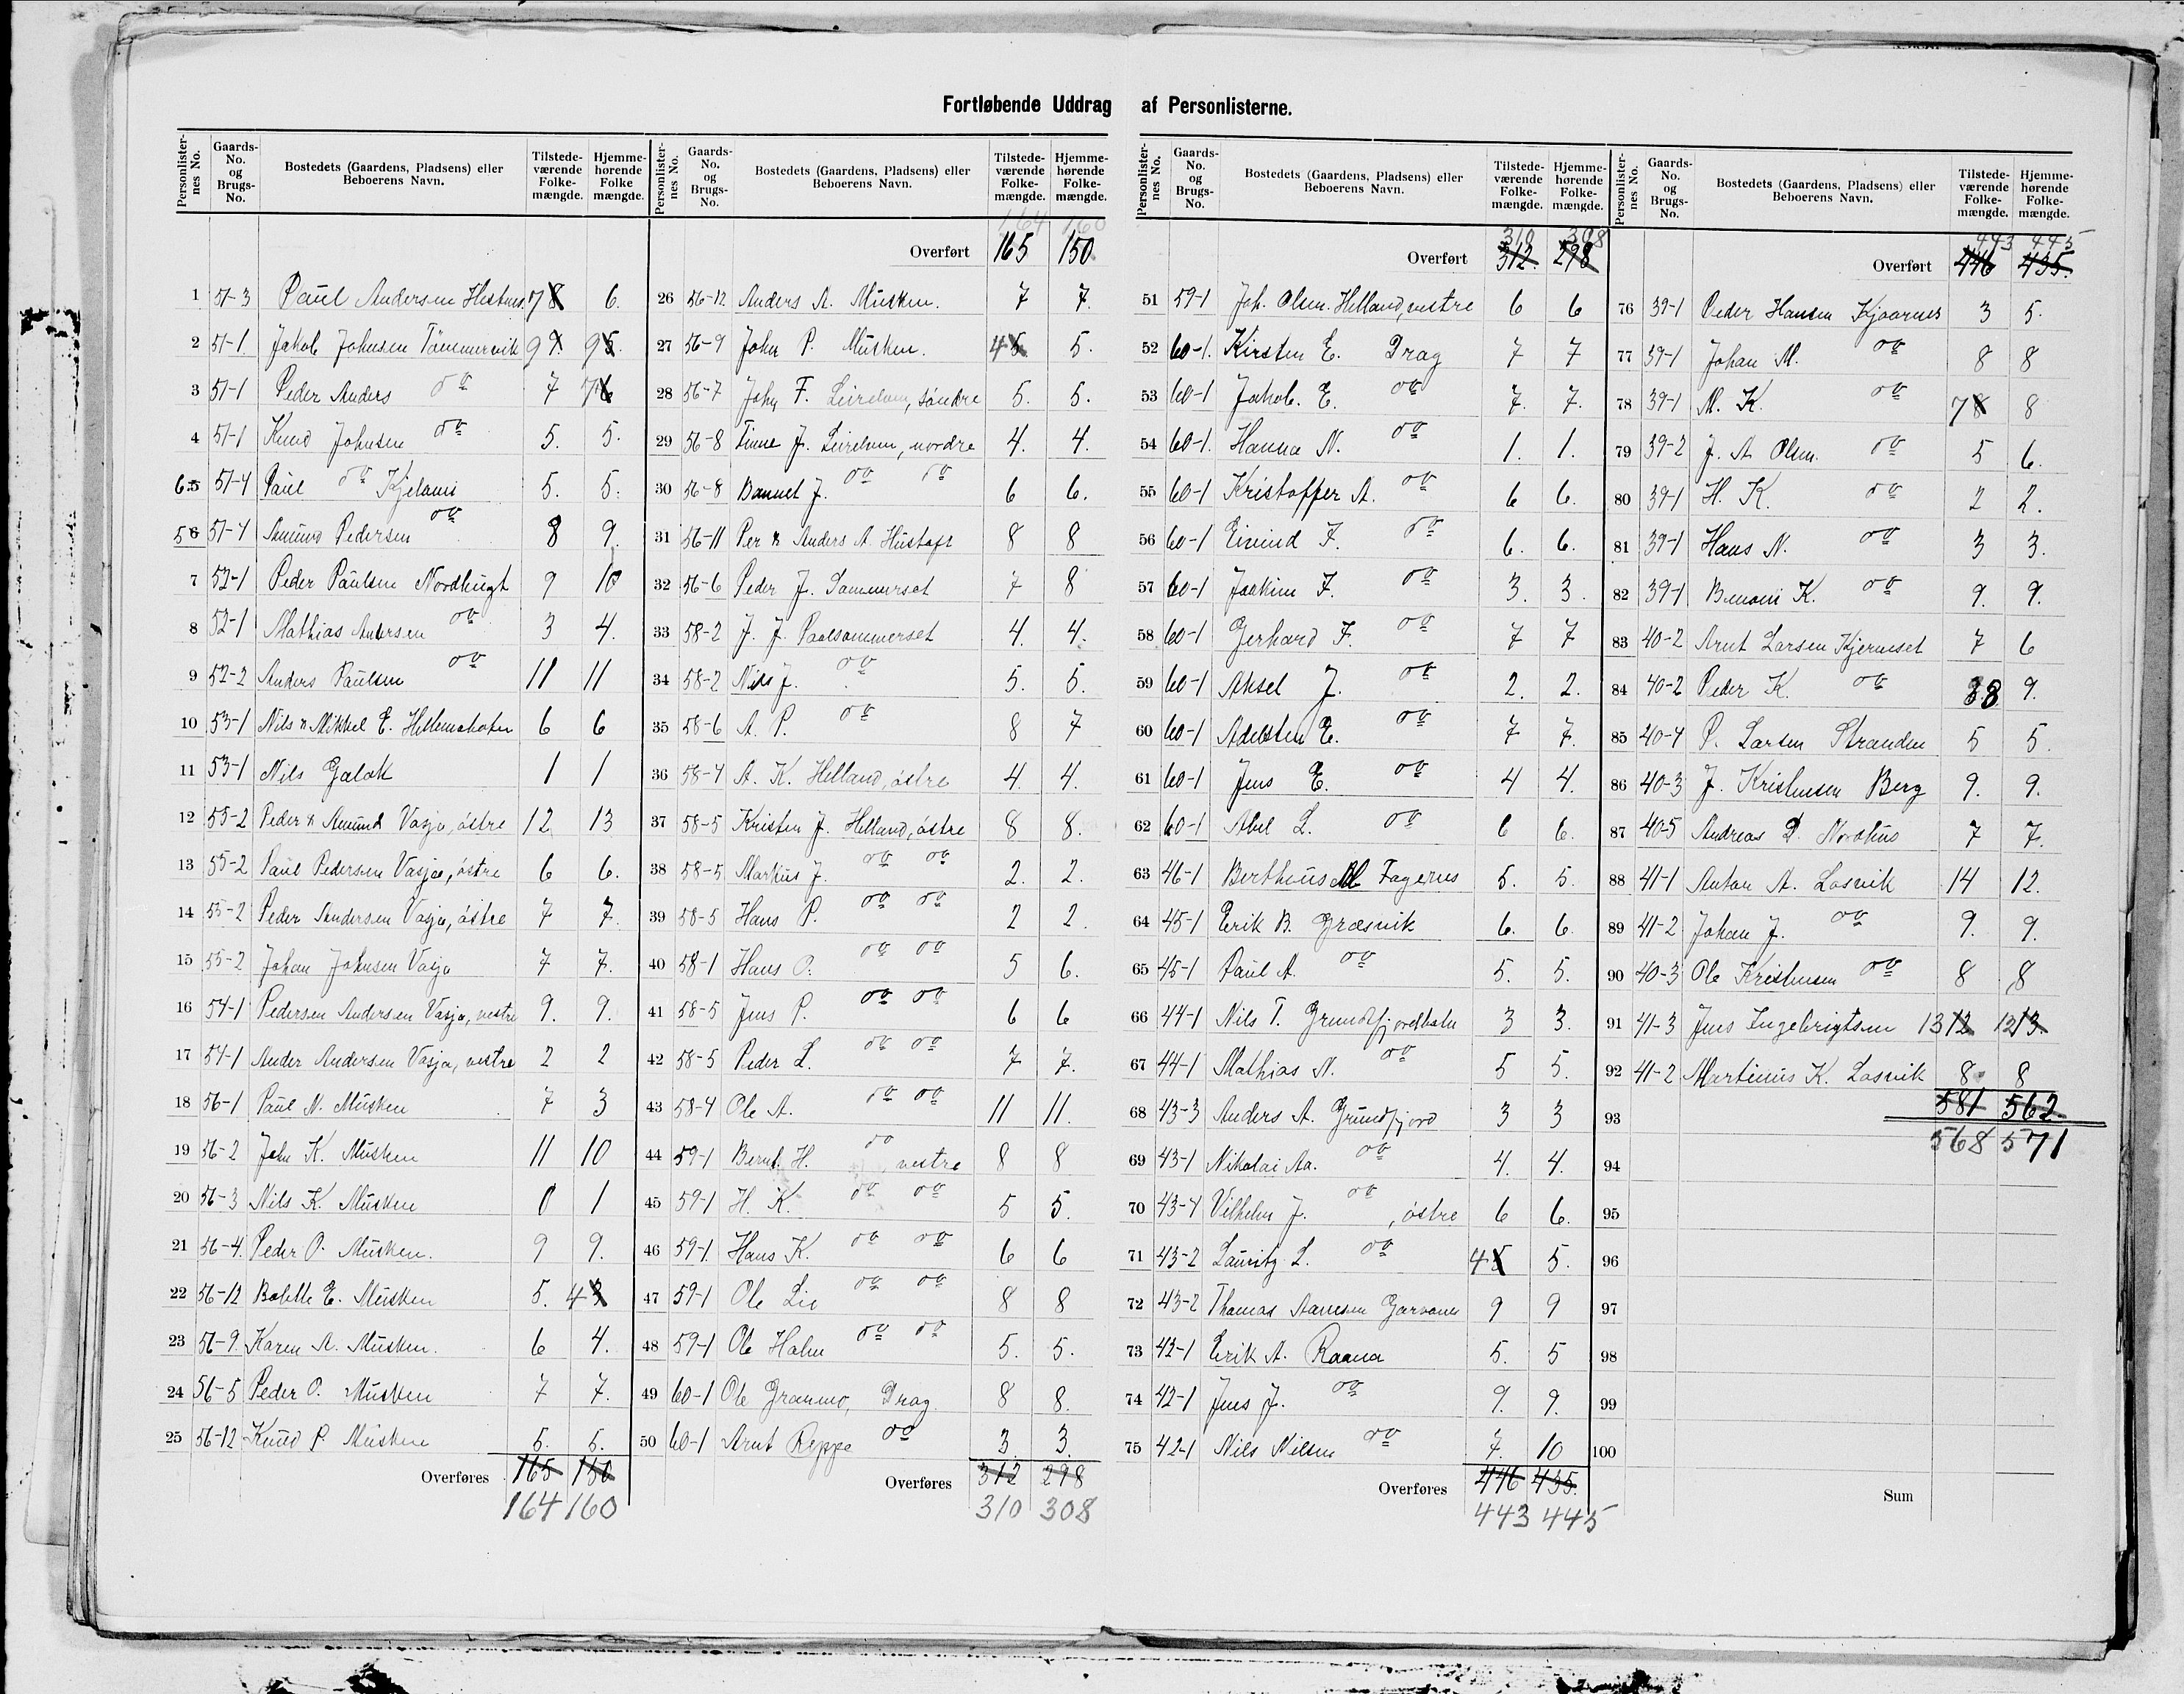 Fortløbende Uddrag af Personlisterne.
Personlisternes No. Gaards-No. og Brugs-No. Bostedets (Gaardens, Pladsens) eller Beboerens Navn. Tilstedeværende Folkemængde. Hjemmehørende Folkemængde.
1 51-3 Paul Andersen 7 8 6.
2 51-1 Jakob Johnsen Tömmervik 9 9 5.
3 51-1 Peder Anders do 7 7 6
4 51-1 Knud Johnsen do 5. 5.
6 5 51-4 Paul do Kjelanes 5. 5.
5 6 51-4 Amund Pedersen do 8 9.
7 52-1 Peder Paulsen Nordbugt 9 10
8 52-1 Mathias Andersen do 3 4.
9 52-2 Anders Paulsen do 11 11
10 53-1 Nils & Mikkel E. Hellemobotn 6 6
11 53-1 Nils Galok 1 1
12 55-2 Peder & Amund Vasja, östre 12 13
13 55-2 Paul Pedersen Vasja, östre 6 6.
14 55-2 Peder Andersen Vasja, östre 7 7.
15 55-2 Johan Johnsen Vasja 7 7.
16 54-1 Pedersen Andersen Vasja, vestre 9. 9.
17 54-1 Ander Andersen Vasja, vestre 2 2
18 56-1 Paul N. Musken 7 3
19 56-2 John K. Musken 11 10
20 56-3 Nils K. Musken 0 1
21 56-4. Peder O. Musken. 9 9.
22 56-12 Bolette E. Musken 5. 4 3
23 56-9. Karen A. Musken. 6 4.
24 56-5 Peder O. Musken 7 7.
25 56-12 Knud P. Musken 5. 5.
Overføres 165 150
164 160
Personlisternes No. Gaards-No. og Brugs-No. Bostedets (Gaardens, Pladsens) eller Beboerens Navn. Tilstedeværende Folkemængde. Hjemmehørende Folkemængde.
164 160
Overført 165 150.
26 56-12 Anders A. Musken. 7 7.
27 56-9 John P. Musken. 4 5 5.
28 56-7 John F. Leirelum, söndre 5. 5.
29 56-8 Tinne J. Leirelum, nordre 4. 4.
30 56-8 J. do do 6 6.
31 56-11 Per & Anders A. Hustoft 8 8
32 56-6 Peder J. Sommerset 7 8
33 58-2 J. J. Paalsommerset 4. 4.
34 58-2 Nils J. do 5. 5.
35 58-6 A. P. do 8 7
36 58-4 A. K. Helland, östre 4. 4.
37 58-5 Kristen J. Helland, östre 8 8.
38 58-5 Markus J. do do 2. 2.
39 58-5 Hans P. do do 2 2.
40 58-1 Hans O. do do 5 6.
41 58-5 Jens P. do do 6 6
42 58-5 Peder L. do do 7 7.
43 58-4 Ole A. do do 11 11.
44 59-1 Bernt H. do, vestre 8 8
45 59-1 H. K. do do 5 5.
46 59-1. Hans K. do do 6 6
47 59-1 Ole Lie do do 8 8
48 59-1 Ole Holm do do 5. 5.
49 60-1 Ole Granmo, Drag. 8 8.
50 60-1 Arnt Reppe do 3. 3.
Overføres 312 298
310 308
Personlisternes No. Gaards-No. og Brugs-No. Bostedets (Gaardens, Pladsens) eller Beboerens Navn. Tilstedeværende Folkemængde. Hjemmehørende Folkemængde.
310 308
Overført 312. 298
51 59-1 Joh. Olsen Helland, vestre 6 6
52 60-1. Kirsten E. Drag 7 7
53 60-1 Jakob. E. do 7. 7.
54 60-1. Hanna N. do 1. 1.
55 60-1 Kristoffer A. do 6 6.
56 60-1 Eivind F. do 6. 6.
57 60-1 Joakim F. do 3. 3.
58 60-1 Gerhard F. do 7 7
59 60-1 Aksel J. do 2. 2.
60 60-1 Adelsten E. do 7 7.
61 60-1 Jens E. do 4 4.
62 60-1 Abel L. do 6 6.
63 46-1 Bertheus M. Fagernes 5. 5.
64 45-1 Erik B. Græsvik 6. 6.
65 45-1 Paul A. do 5. 5.
66 44-1 Nils T. Grundfjordbotn 3 3.
67 44-1 Mathias N. do 5 5.
68 43-3 Anders A. Grundfjord 3 3
69 43-1 Nikolai Aa. do 4. 4.
70 43-4 Vilhelm J. do, östre 6 6.
71 43-2 Lauritz L. do 4 5 5.
72 43-2 Thomas 9 9
73 42-1 Erik A. Raana 5. 5
74 42-1 Jens J. do 9. 9.
75 42-1 Nils Nilsen do 7. 10
Overføres 446 435.
443 445
Personlisternes No. Gaards-No. og Brugs-No. Bostedets (Gaardens, Pladsens) eller Beboerens Navn. Tilstedeværende Folkemængde. Hjemmehørende Folkemængde.
443 445
Overført 446 435.
76 39-1 Peder Hansen Kjoornes 3 5.
77 39-1 Johan M. do 8 8
78 39-1 M. K. do 7 8 8
79 39-2 J. A. Olsen. do 5 6.
80 39-1 H. K. do 2 2.
81 39-1 Hans N. do 3 3.
82 39-1 Benoni K. do 9. 9.
83 40-2 Arnt Larsen Kjerneset 7 6
84 40-2 Peder K. do 8 9.
85 40-4 P. Larsen Stranden 5 5.
86 40-3 J. Kristensen Berg 9. 9.
87 40-5 Andreas D. Nordhus 7 7.
88 41-1 Anton A. Losvik 14 12.
89 41-2 Johan J. do 9. 9.
90 40-3 Ole Kristensen do 8 8
91 41-3 Jens Ingebrigtsen 13 12 12 13.
92 41-2 Martinus K. Losvik 8 8
93 581 562.
568 571
94
95
96
97
98
99
100
Sum